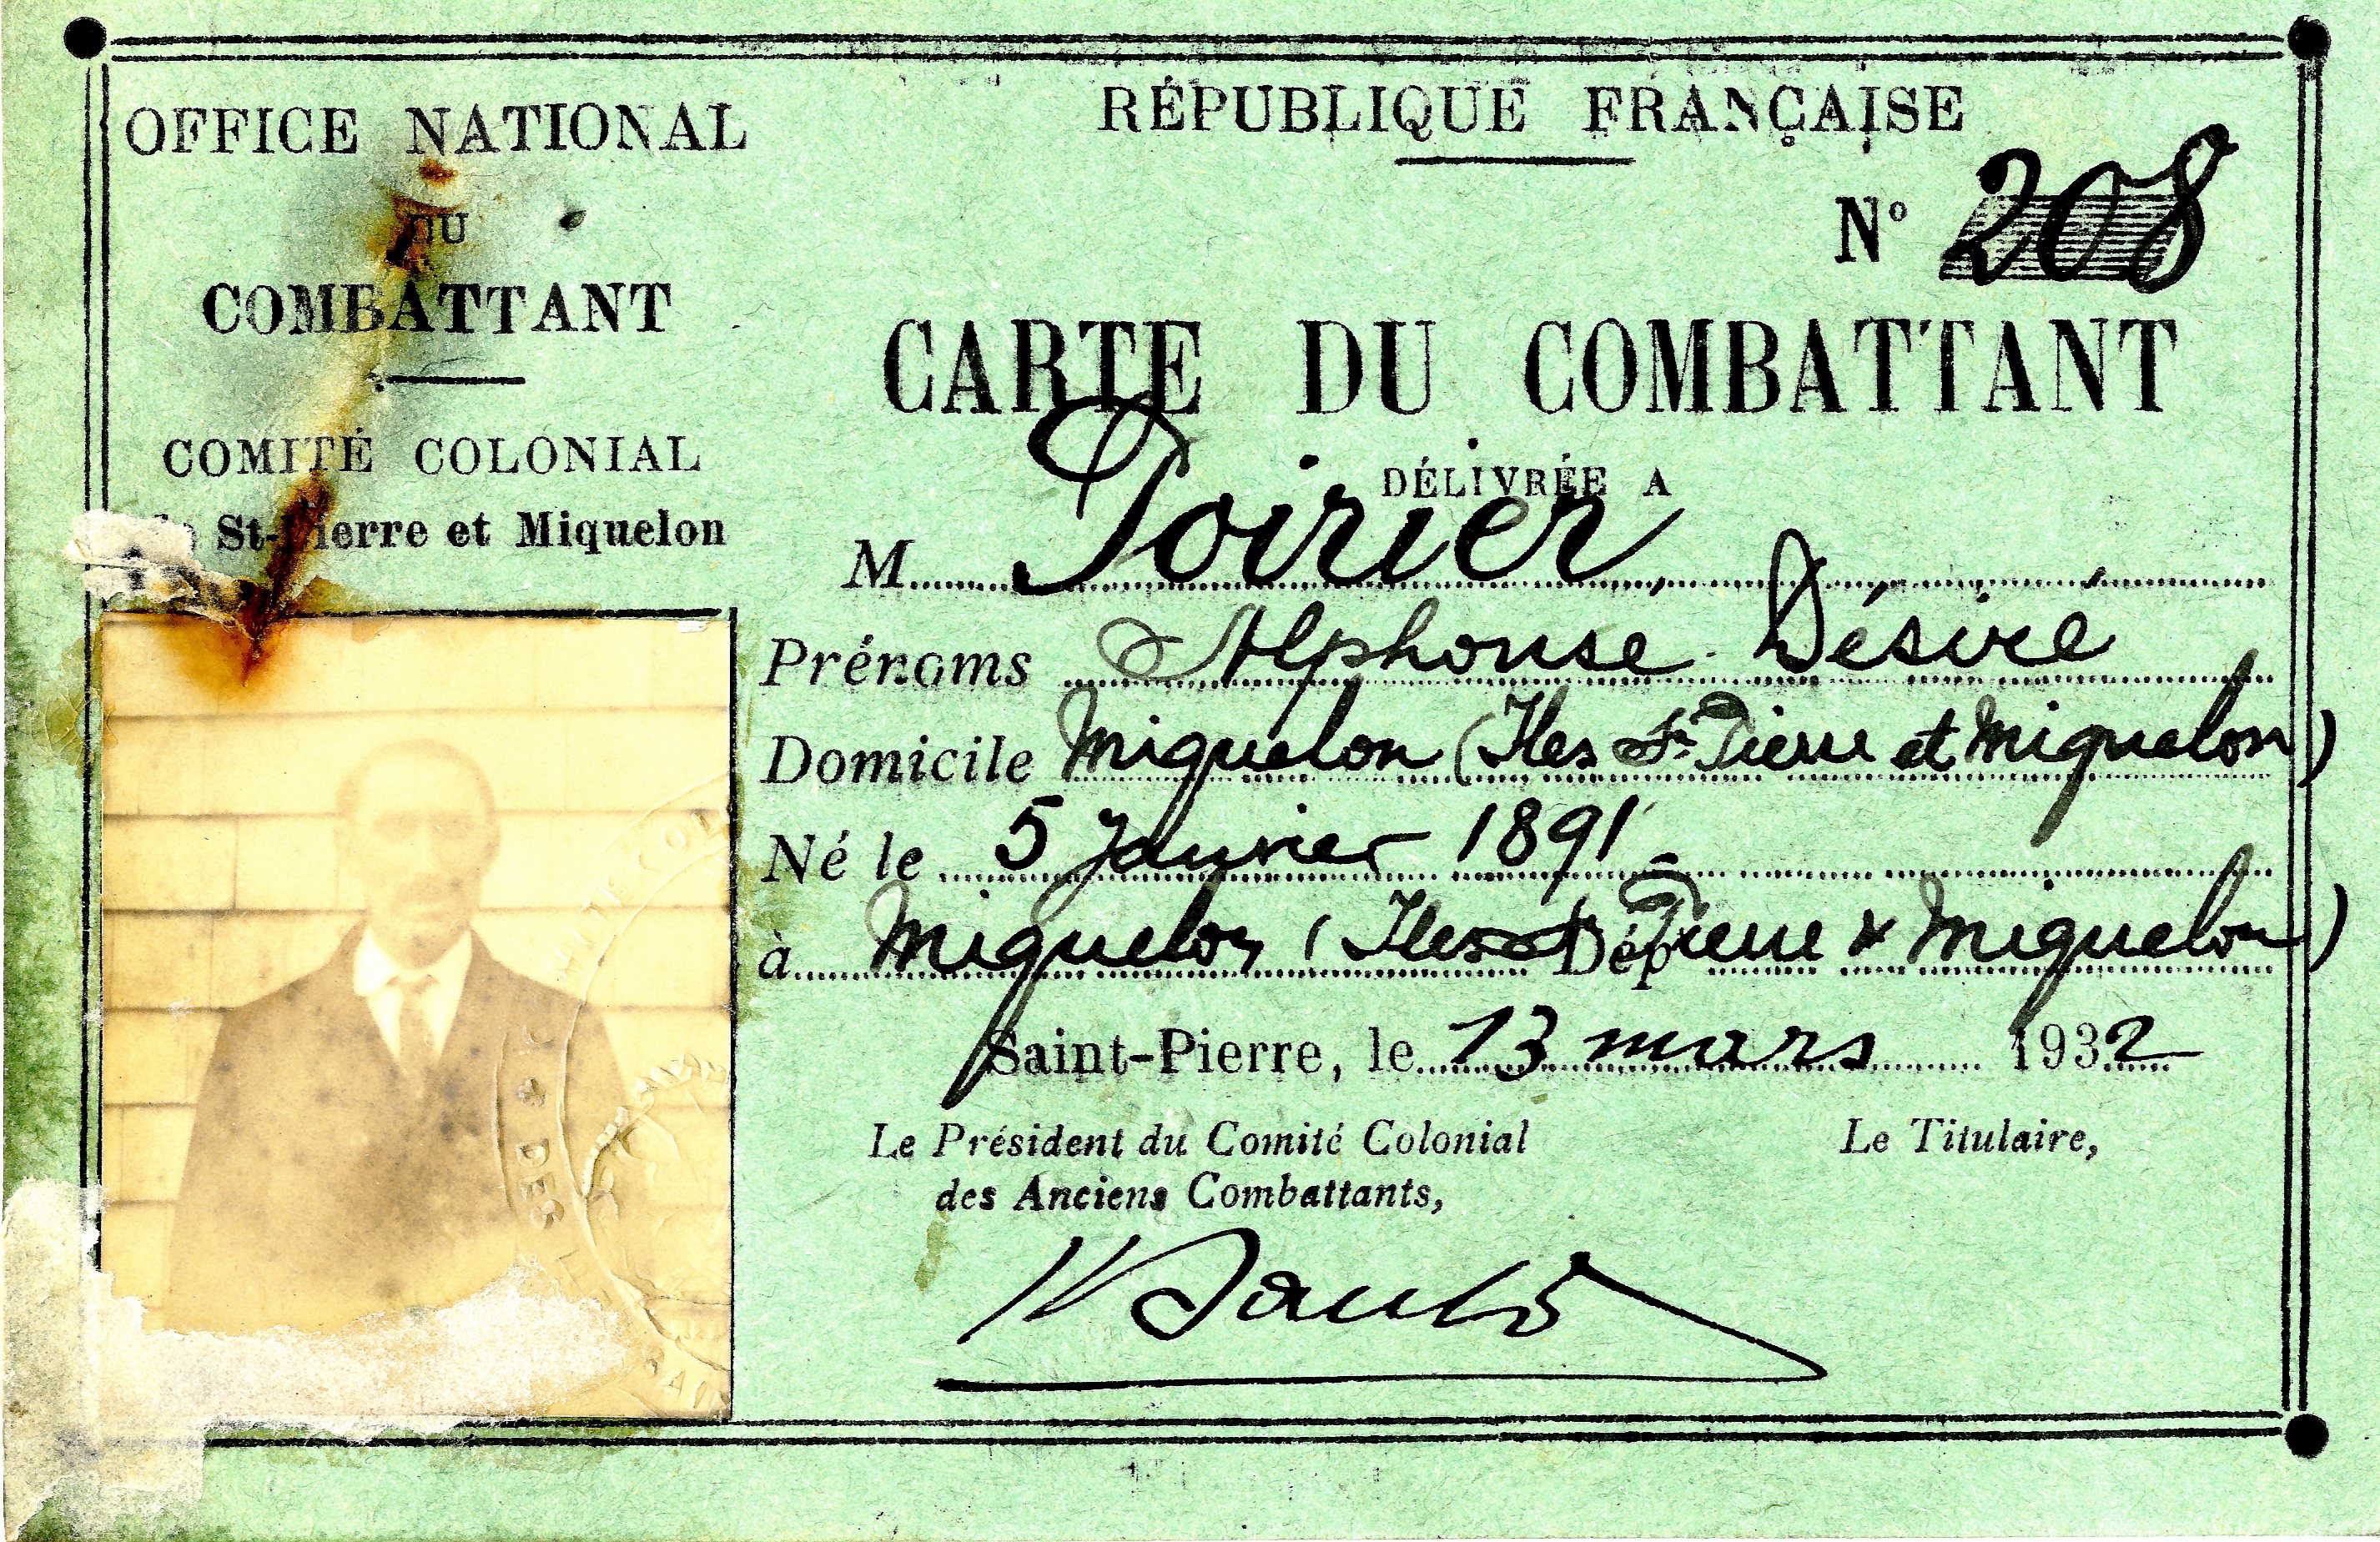 OFFICE NATIONAL
DU
COMBATTANT
COMITÉ COLONIAL
St-Pierre et Miquelon
RÉPUBLIQUE FRANÇAISE
N° 208
CARTE DU COMBATTANT
DÉLIVRÉE A
M. Poirier,
Prénoms Alphonse Désiré
Domicile Miquelon (Iles St Pierre et Miquelon)
Né le 5 Janvier 1891
à Miquelon (Iles St Pierre & Miquelon)
Dépt
Saint-Pierre, le 13 mars 1932
Le Président du Comité Colonial
des Anciens Combattants,
Le Titulaire,
DES